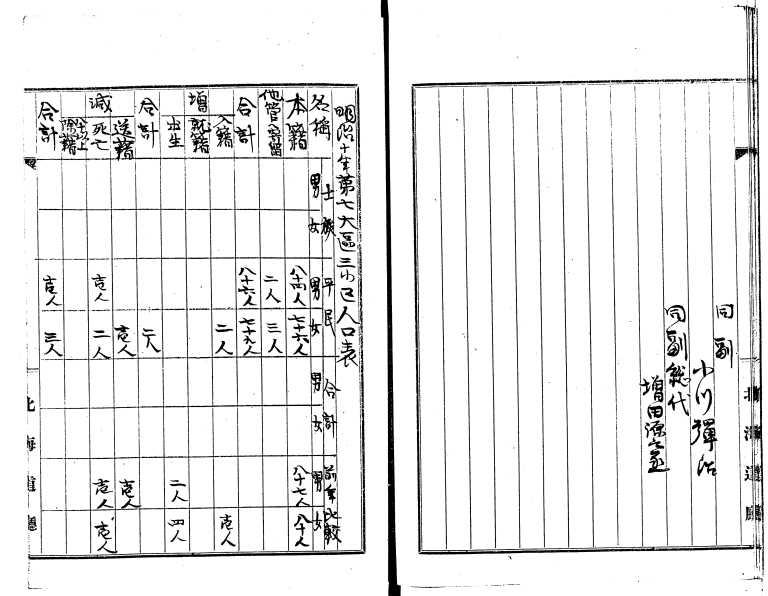 同副
小川彈治
同副総代
増田源之丞
北海道廳
明治十年第七大區三小区人口表
名稱 士族 男 女 平民 男 女 合計 男 女 前年比較 男 女
本籍 八十四人 七十六人 八十七人 八十人
他管寄留 二人 三人
合計 八十六人 七十九人
増 入籍 二人 壱人
就籍
出生 二人 四人
合計 二人
減 送籍 壱人 壱人
死亡 壱人 二人 壱人 壱人
除籍
合計 壱人 三人
北海道廳